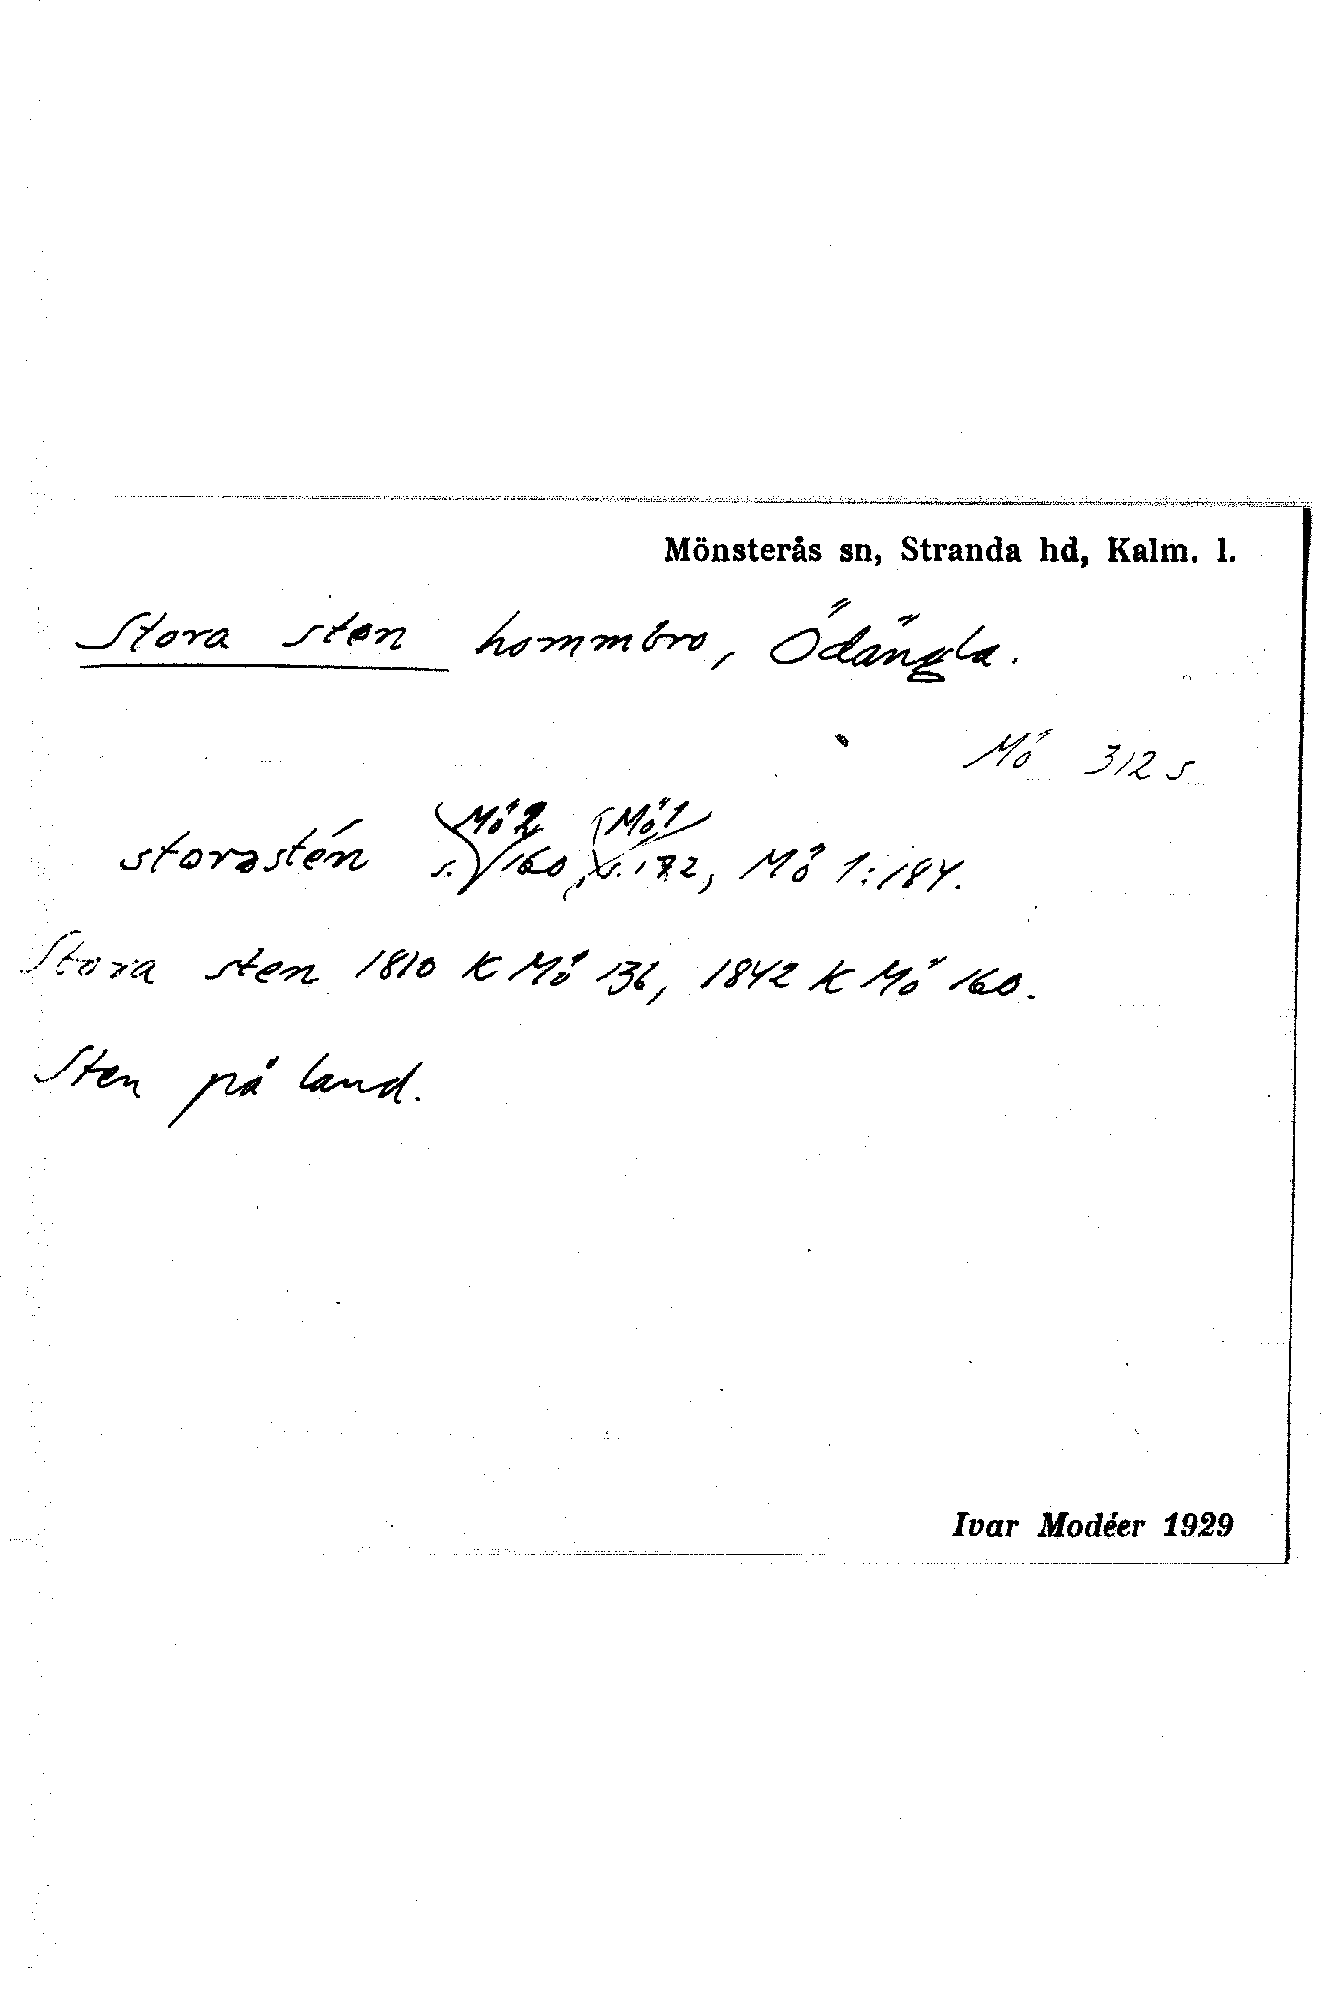 Mönsterås sn, Stranda hd, Kalm. l.
Stora sten hommbro, Ödängla.
Mö 312 s
Mö 2 Mö 1
storəstén s. 160, s. 182, Mö 1:184.
Stora sten 1810 K Mö 136, 1842 K Mö 160.
Sten på land.
Ivar Modéer 1929